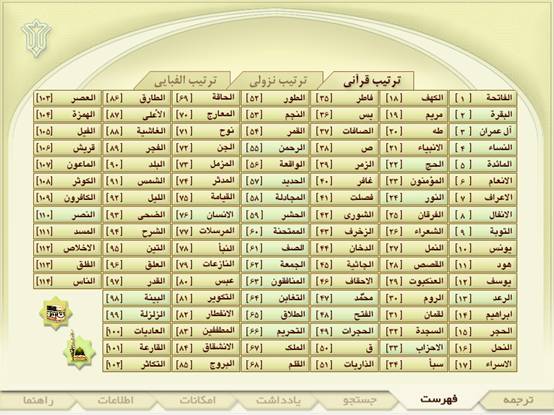 ترتیب قرآنی ترتیب نزولی ترتیب الفبایی
الفاتحة [۱] الکهف [۱۸] فاطر [۳۵] الطور [۵۲] الحاقة [۶۹] الطارق [۸۶] العصر [۱۰۳]
البقرة [۲] مریم [۱۹] یس [۳۶] النجم [۵۳] المعارج [۷۰] الأعلی [۸۷] الهمزة [۱۰۴]
آل عمران [۳] طه [۲۰] الصافات [۳۷] القمر [۵۴] نوح [۷۱] الغاشیة [۸۸] الفیل [۱۰۵]
النساء [۴] الانبیاء [۲۱] ص [۳۸] الرحمن [۵۵] الجن [۷۲] الفجر [۸۹] قریش [۱۰۶]
المائدة [۵] الحج [۲۲] الزمر [۳۹] الواقعة [۵۶] المزمل [۷۳] البلد [۹۰] الماعون [۱۰۷]
الانعام [۶] المؤمنون [۲۳] غافر [۴۰] الحدید [۵۷] المدثر [۷۴] الشمس [۹۱] الکوثر [۱۰۸]
الاعراف [۷] النور [۲۴] فصلت [۴۱] المجادلة [۵۸] القیامة [۷۵] اللیل [۹۲] الکافرون [۱۰۹]
الانفال [۸] الفرقان [۲۵] الشوری [۴۲] الحشر [۵۹] الانسان [۷۶] الضحی [۹۳] النصر [۱۱۰]
التوبة [۹] الشعراء [۲۶] الزخرف [۴۳] الممتحنة [۶۰] المرسلات [۷۷] الشرح [۹۴] المسد [۱۱۱]
یونس [۱۰] النمل [۲۷] الدخان [۴۴] الصف [۶۱] النبأ [۷۸] التین [۹۵] الاخلاص [۱۱۲]
هود [۱۱] القصص [۲۸] الجاثیة [۴۵] الجمعة [۶۲] النازعات [۷۹] العلق [۹۶] الفلق [۱۱۳]
یوسف [۱۲] العنکبوت [۲۹] الاحقاف [۴۶] المنافقون [۶۳] عبس [۸۰] القدر [۹۷] الناس [۱۱۴]
الرعد [۱۳] الروم [۳۰] محمّد [۴۷] التغابن [۶۴] التکویر [۸۱] البینة [۹۸]
ابراهیم [۱۴] لقمان [۳۱] الفتح [۴۸] الطلاق [۶۵] الانفطار [۸۲] الزلزلة [۹۹]
الحجر [۱۵] السجدة [۳۲] الحجرات [۴۹] التحریم [۶۶] المطففین [۸۳] العادیات [۱۰۰]
النحل [۱۶] الاحزاب [۳۳] ق [۵۰] الملک [۶۷] الانشقاق [۸۴] القارعة [۱۰۱]
الاسراء [۱۷] سبأ [۳۴] الذاریات [۵۱] القلم [۶۸] البروج [۸۵] التکاثر [۱۰۲]
ترجمه فهرست جستجو یادداشت امکانات اطلاعات راهنما